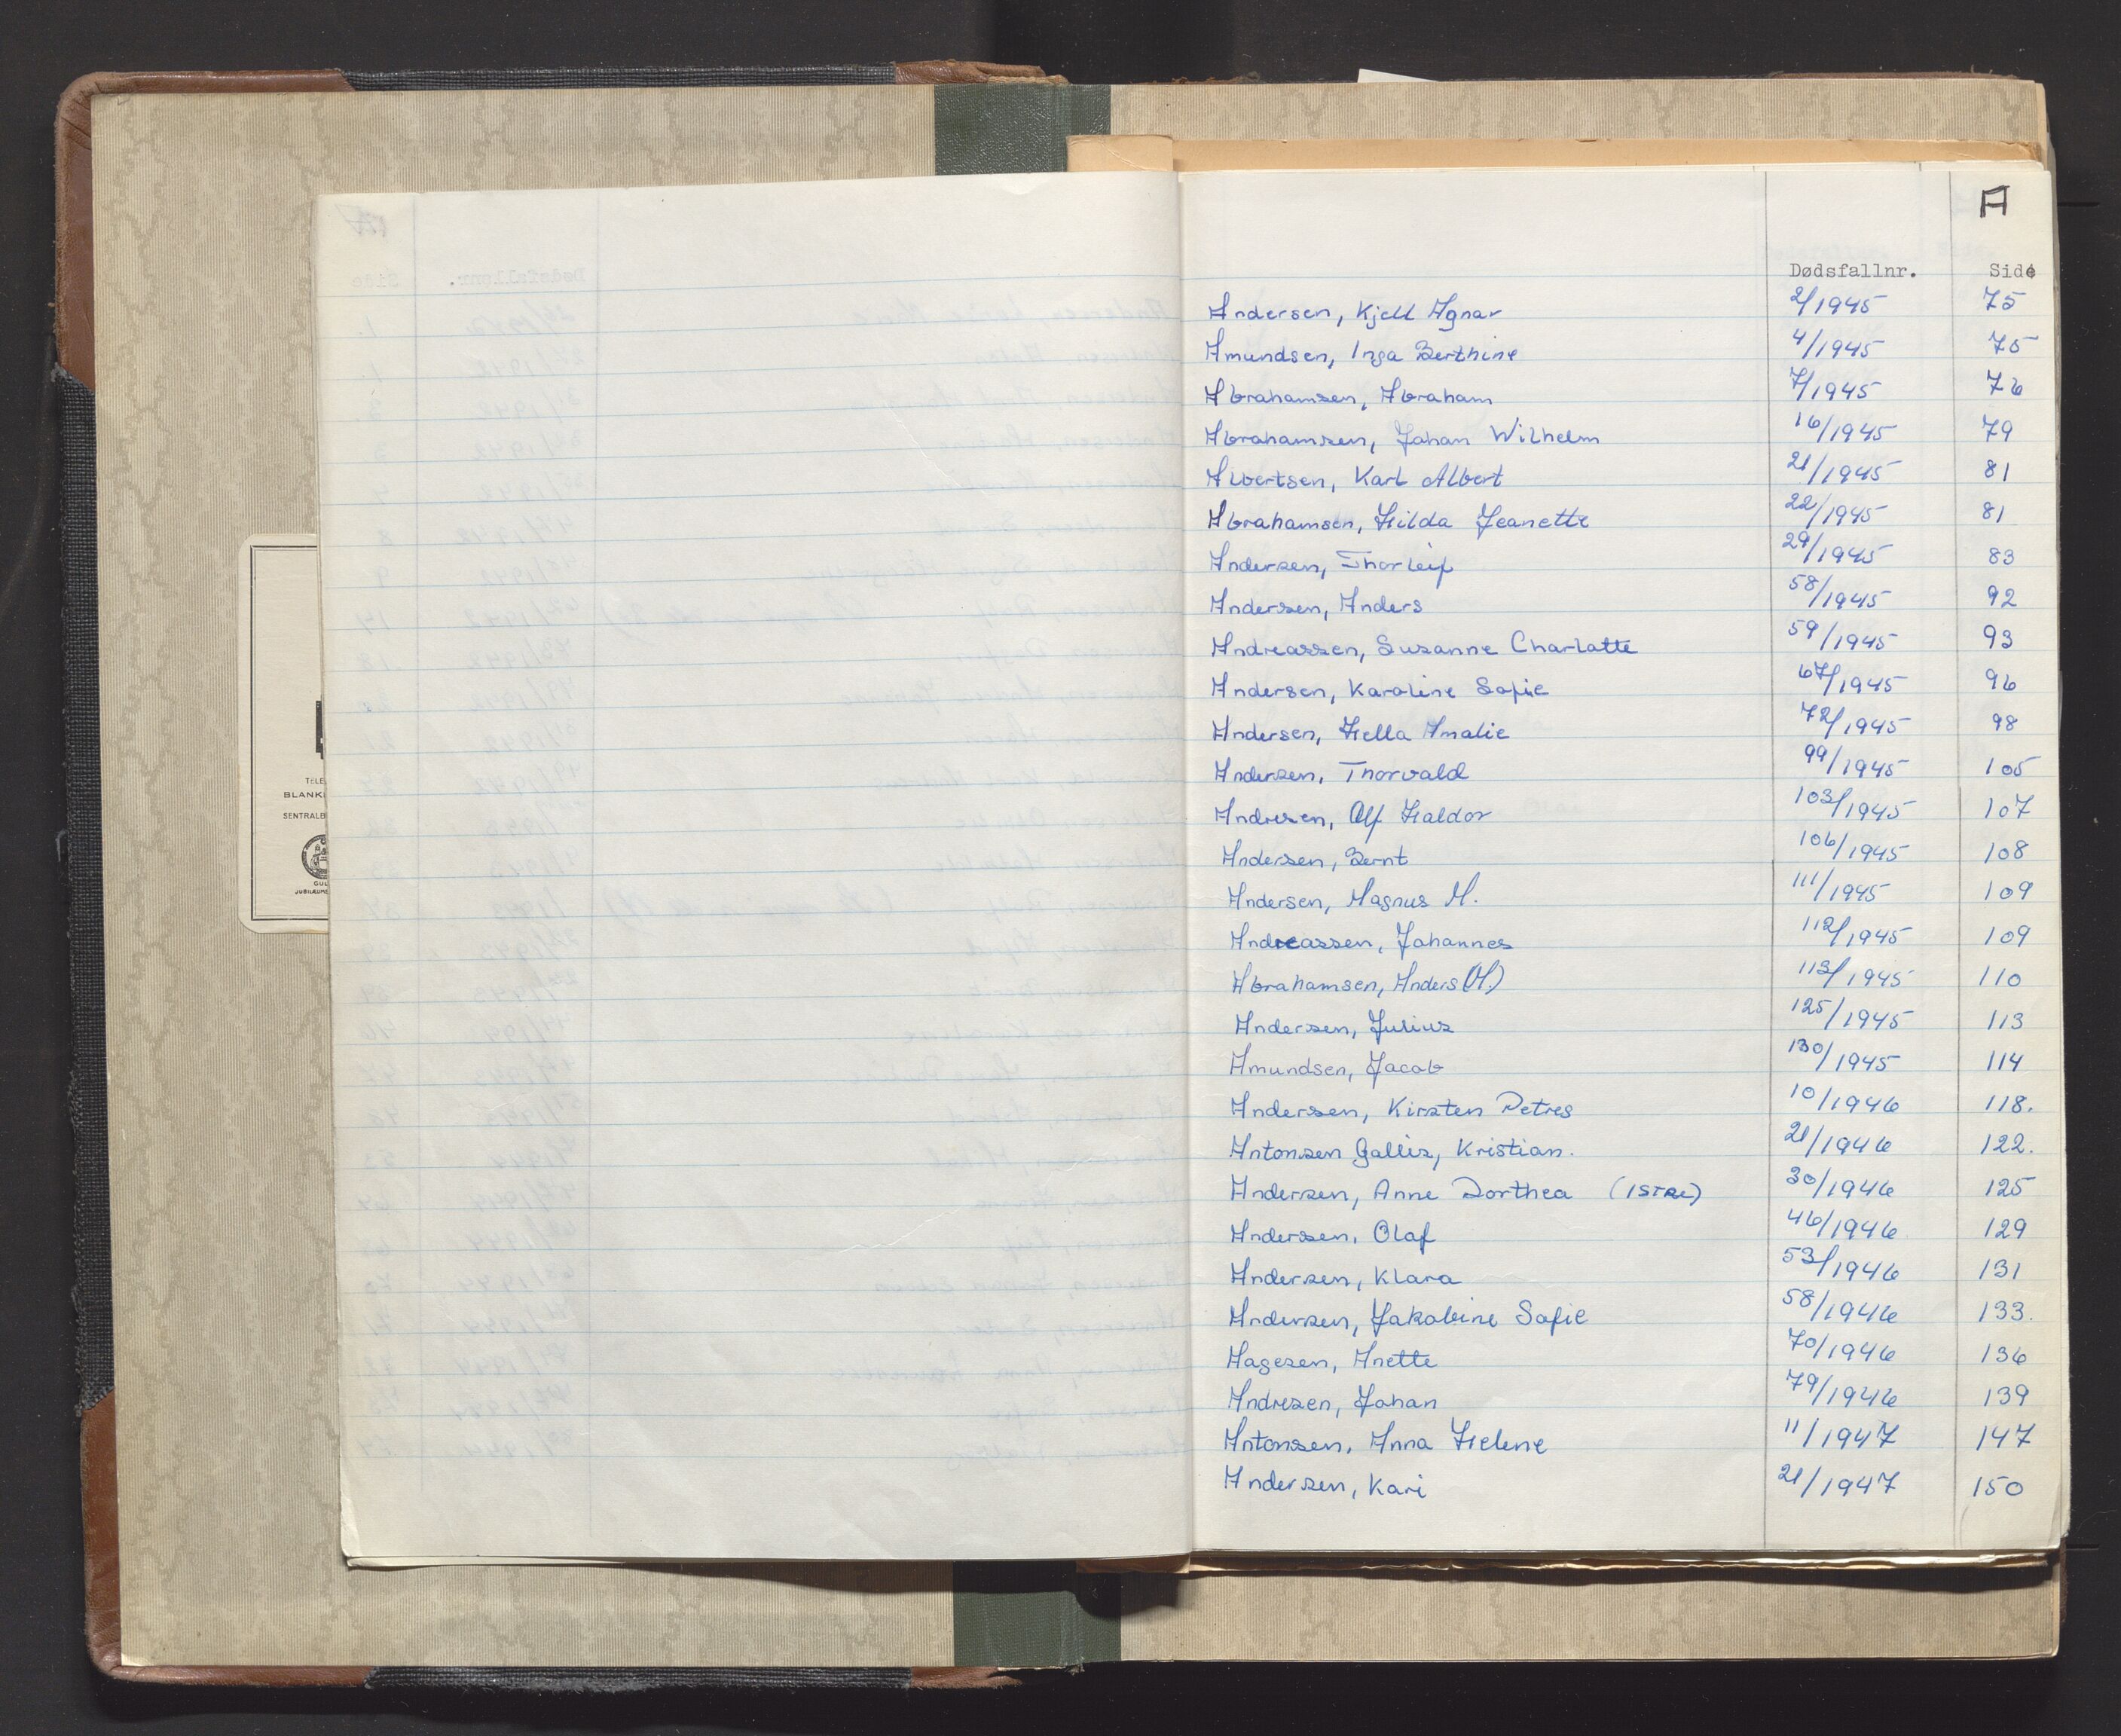 A
Dødsfallnr. Side
Andersen, Kjell Agnar 2/1945 75
Amundsen, Inga Berthine 4/1945 75
Abrahamsen, Abraham 7/1945 76
Abrahamsen, Johan Wilhelm 16/1945 79
Albertsen, Karl Albert 21/1945 81
Abrahamsen, Hilda Jeanette 22/1945 81
Andersen, Thorleif 29/1945 83
Andersen, Anders 58/1945 92
Andreassen, Susanne Charlotte 59/1945 93
Andersen, Karoline Sofie 67/1945 96
Andersen, Hella Amalie 72/1945 98
Andersen, Thorvald 99/1945 105
Andresen, Alf Haldor 103/1945 107
Andersen, Bernt 106/1945 108
Andersen, Magnus M. 111/1945 109
Andreassen, Johannes 112/1945 109
Abrahamsen, Anders (A.) 113/1945 110
Andersen, Julius 125/1945 113
Amundsen, Jacob 130/1945 114
Andersen, Kirsten Petres 10/1946 118.
Antonsen Gallis, Kristian. 21/1946 122.
Andersen, Anne Dorthea (ISTRE) 30/1946 125
Andersen, Olaf 46/1946 129
Andersen, Klara 53/1946 131
Andersen, Jakobine Sofie 58/1946 133.
Aagesen, Anette 70/1946 136
Andresen, Johan 79/1946 139
Antonsen, Anna Helene 11/1947 147
Andersen, Kari 21/1947 150